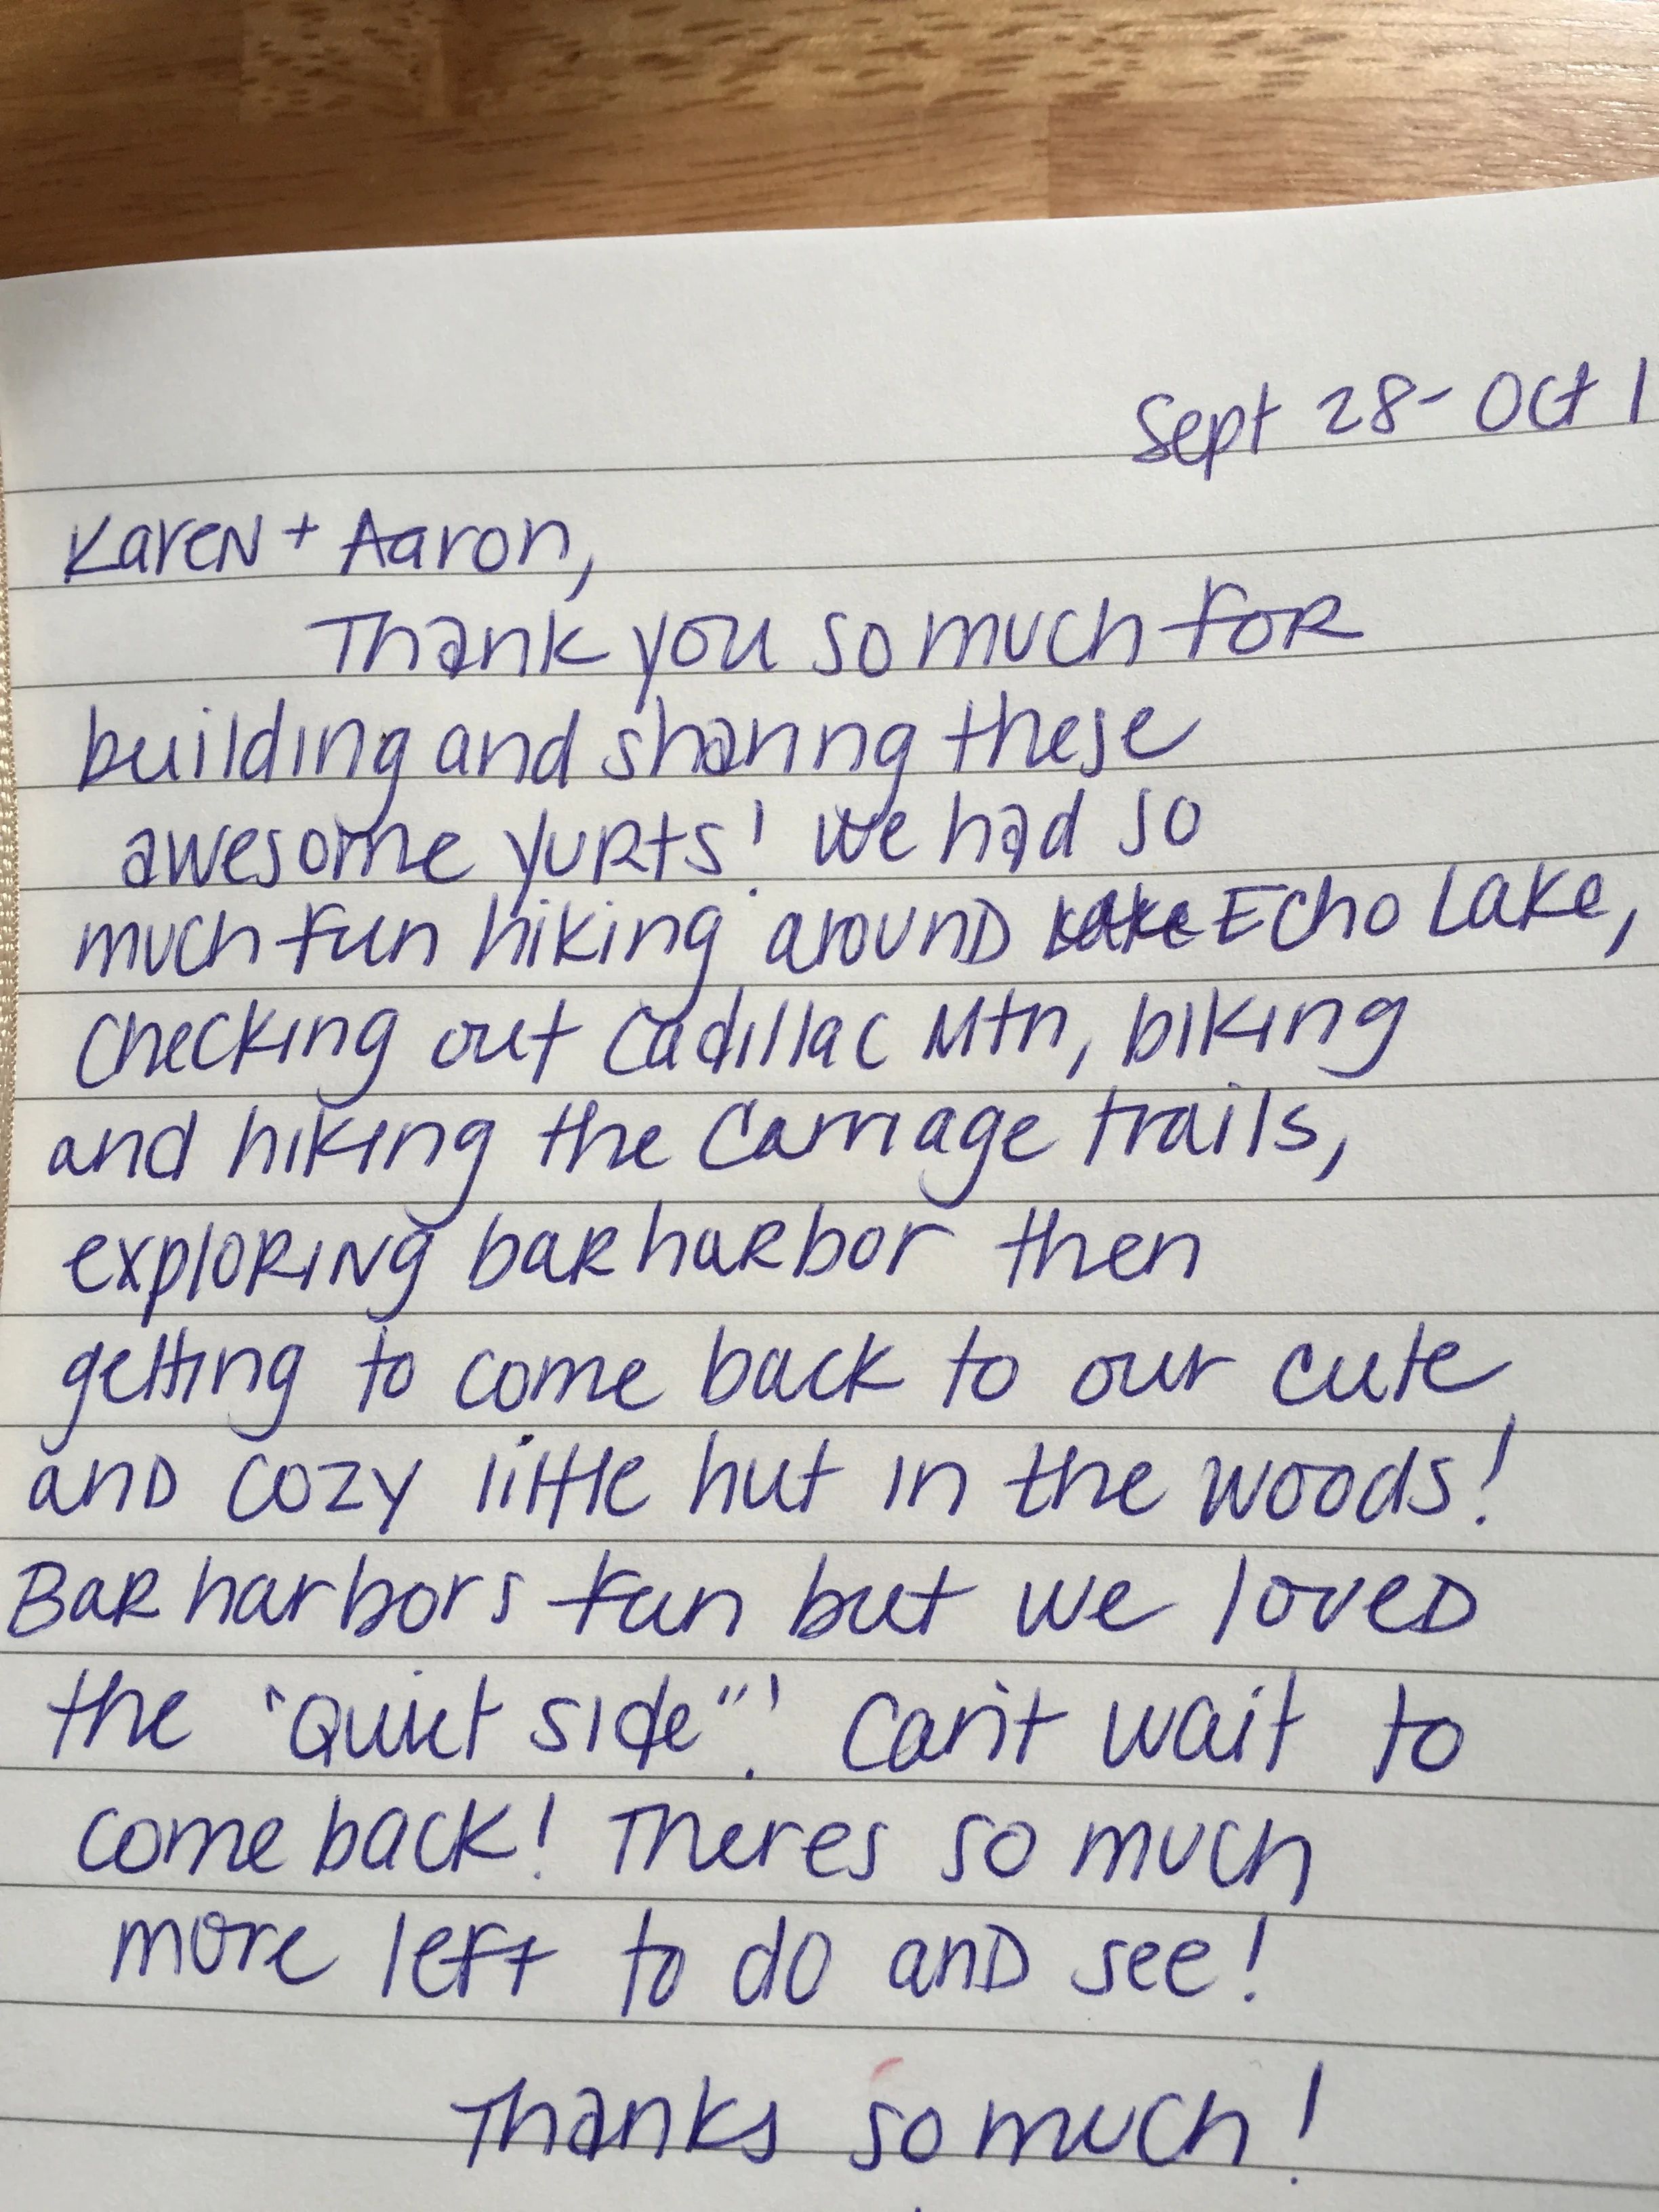 Sept 28 - Oct 1
Karen + Aaron,
Thank you so much for
building and sharing these
awesome yurts! We had so
much fun hiking around Echo Lake,
checking out Cadillac Mtn, biking
and hiking the Carriage trails,
exploring bar harbor then
getting to come back to our cute
and cozy little hut in the woods!
Bar harbors fun but we loved
the "Quiet side"! Can't wait to
come back! Theres so much
more left to do and see!
Thanks so much!